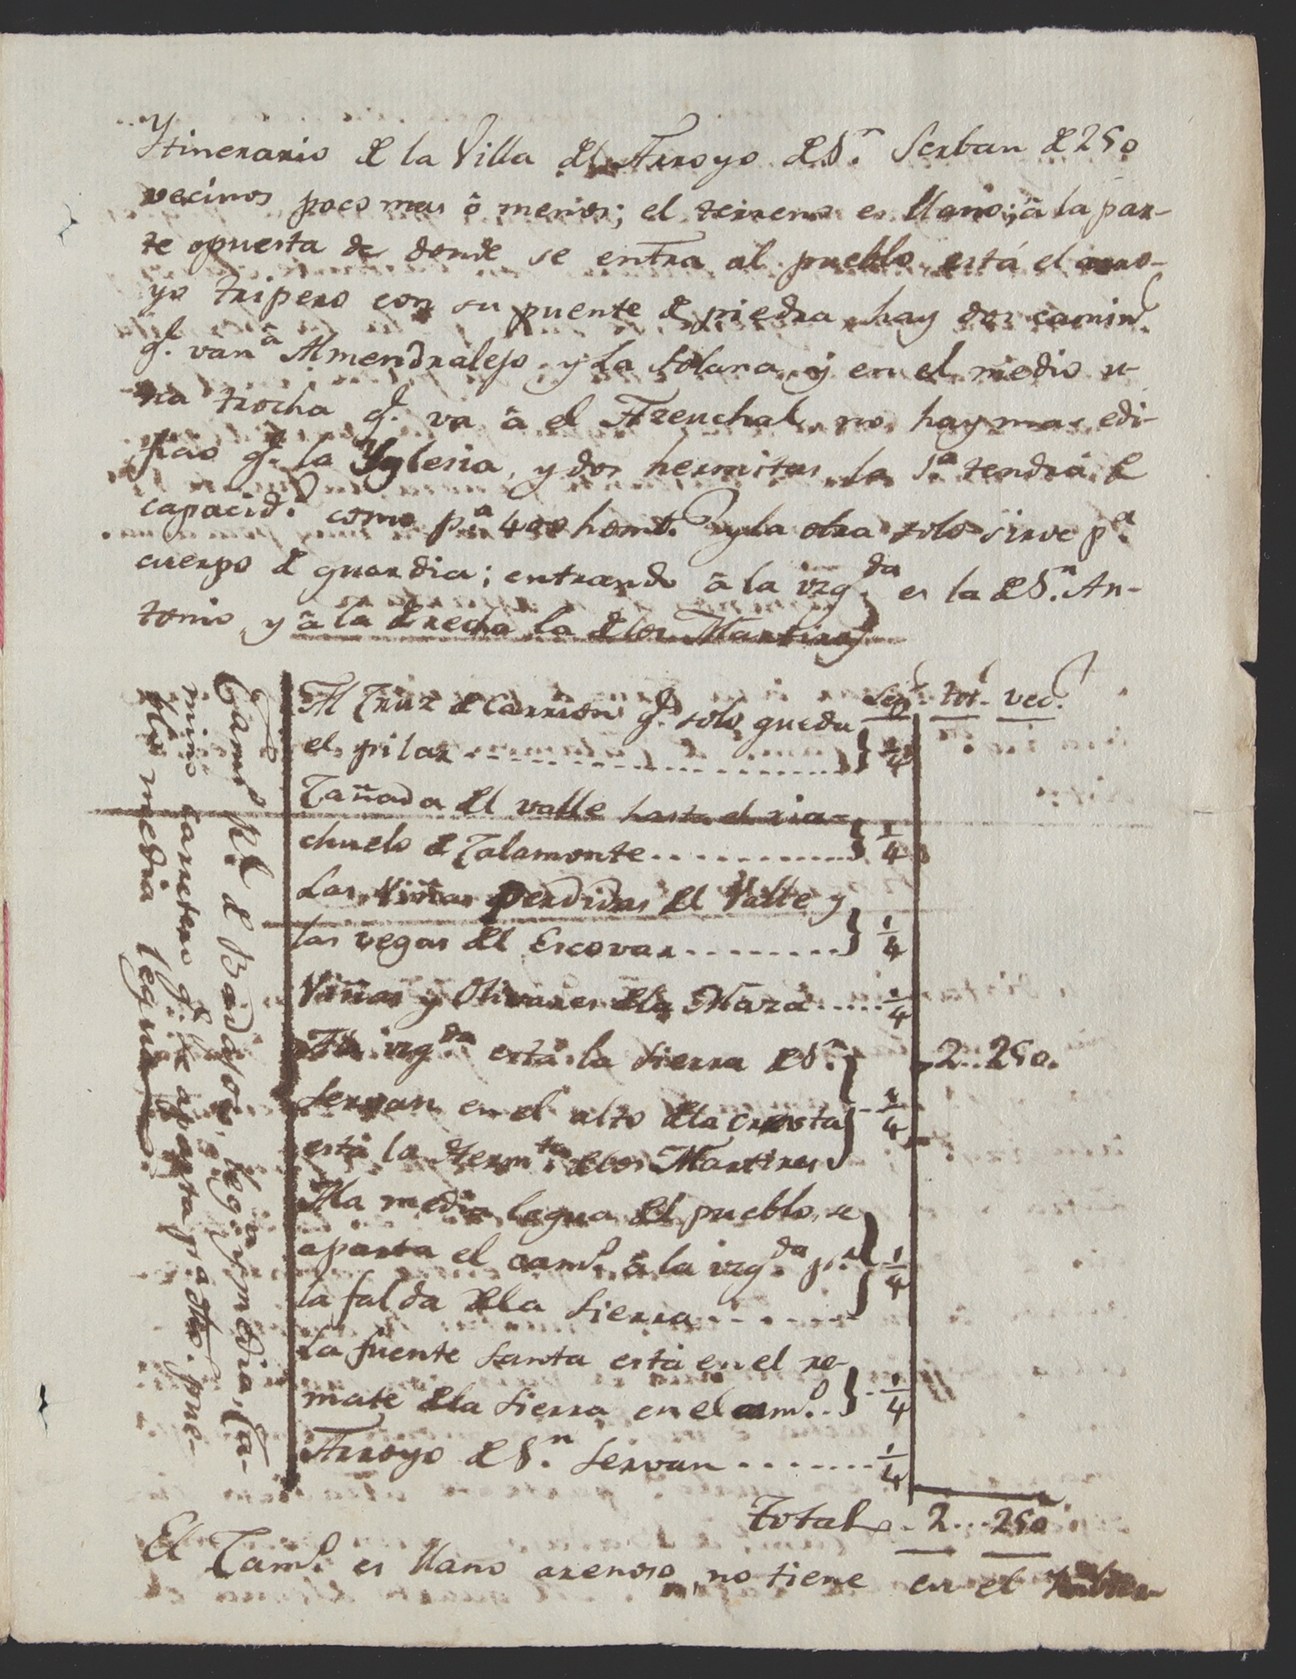 Ytinerario de la Villa del Arroyo de Sn. Serban de 250
vecinos poco mas ô menos; el terreno es llano; â la par-
te opuesta de donde se entra al pueblo está el arro-
yo tripero con su puente de piedra hay dos camins.
q.e van â Almendralejo y la Solana, y en el medio u-
na trocha q.e va â el Azeuchal, no hay mas edi-
ficio q.e la Yglesia, y dos hermitas la 1.a tendrá de
capacid.d como p.a 400 homb.s y la otra solo sirve p.a
cuerpo de guardia; entrando â la izq.da es la de Sn. An-
tonio, y â la drecha la de los Martires
Leg.s tot.s vec.s
Al Cruz de Carrion q.e solo queda
el pilar } 1/4
Cañada del valle hasta el ria-
chuelo de Calamonte } 1/4
Las Viñas perdidas del Valle y
las vegas del Escovar } 1/4
Viñas y Olivares de la Maza 1/4
A la izq.da está la Sierra de Sn.
Servan en el alto de la cresta
está la Herm.ta de los Martires } 1/4 2 250.
A la media legua del pueblo se
aparta el cam.o â la izq.da p.r
la falda de la Sierra } 1/4
La fuente Santa está en el re-
mate de la Sierra en el cam.o } 1/4
Arroyo de Sn. Servan 1/4
Total 2 250
Cam.o R.l de Badajoz, leg.a y media, Ca-
mino carretero q.e se aparta p.a dho. pue-
blo media legua.
El Cam.o es llano arenoso, no tiene en el